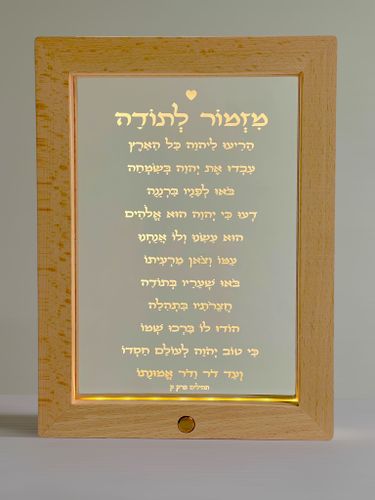 מִזְמוֹר לְתוֹדָה
הָרִיעוּ לַיהוָה כָּל הָאָרֶץ
עִבְדוּ אֶת יְהוָה בְּשִׂמְחָה
בֹּאוּ לְפָנָיו בִּרְנָנָה
דְּעוּ כִּי יְהוָה הוּא אֱלֹהִים
הוּא עָשָׂנוּ וְלוֹ אֲנַחְנוּ
עַמּוֹ וְצֹאן מַרְעִיתוֹ
בֹּאוּ שְׁעָרָיו בְּתוֹדָה
חֲצֵרֹתָיו בִּתְהִלָּה
הוֹדוּ לוֹ בָּרְכוּ שְׁמוֹ
כִּי טוֹב יְהוָה לְעוֹלָם חַסְדּוֹ
וְעַד דֹּר וָדֹר אֱמוּנָתוֹ
תהילים פרק ק